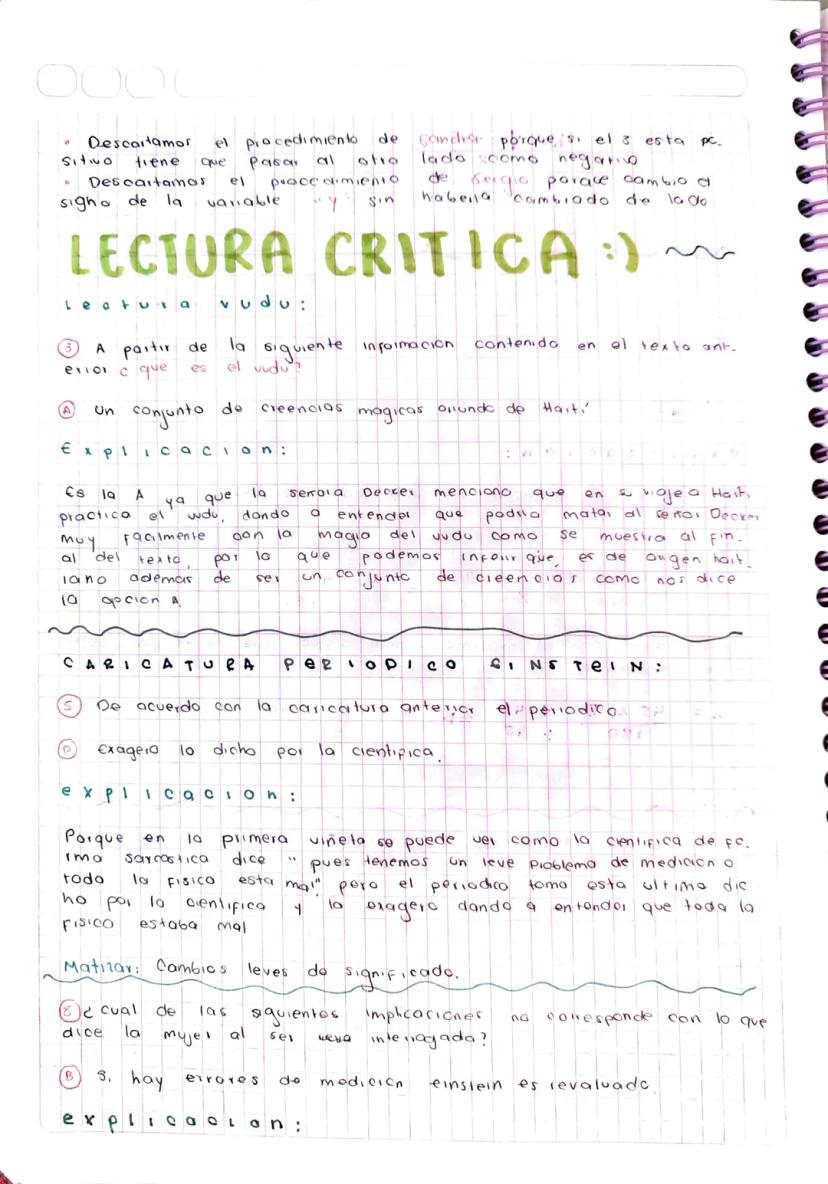 • Descartamos el procedimiento de sandra porque si el 3 esta po-
sitivo tiene que pasar al otro lado como negativo
• Descartamos el procedimiento de sergio porque cambio el
signo de la variable "y" sin haberla cambiado de lado
LECTURA CRITICA :)
Lectura vudu:
③ A partir de la siguiente informacion contenido en el texto ant-
erior ¿que es el vudu?
Ⓐ un conjunto de creencias magicas oriundo de Haití
Explicacion:
Es la A ya que la señora Decker menciona que en su viaje a Haiti
practica el vudu, dando a entender que podria matar al señor Decker
muy facilmente con la magia del vudu como se muestra al fin-
al del texto, por lo que podemos inferir que, es de origen hait-
iano ademas de ser un conjunto de creencias como nos dice
la opcion A.
CARICATURA PERIODICO EINSTEIN:
⑤ De acuerdo con la caricatura anterior el periodico
Ⓓ Exagero lo dicho por la cientifica.
explicacion:
Porque en la primera viñeta se puede ver como la cientifica de fo-
rma sarcastica dice "pues tenemos un leve problema de medicion o
toda la fisica esta mal" pero el periodico tomo esta ultima dic
ho por la cientifica y la exagero dando a entender que toda la
fisica estaba mal
Matizar: Cambios leves de significado.
⑧ ¿cual de las siguientes implicaciones no corresponde con lo que
dice la mujer al ser interrogada?
Ⓑ Si hay errores de medicion einstein es revaluado.
explicacion: